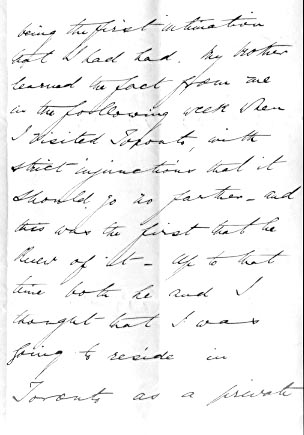 being the first intimation
that I had had. My brother
learned the fact from me
in the following week when
I visited Toronto, with
strict injunctions that it
should go no farther - and
this was the first that he
knew of it - Up to that
time both he and I
thought that I was
going to reside in
Toronto as a private